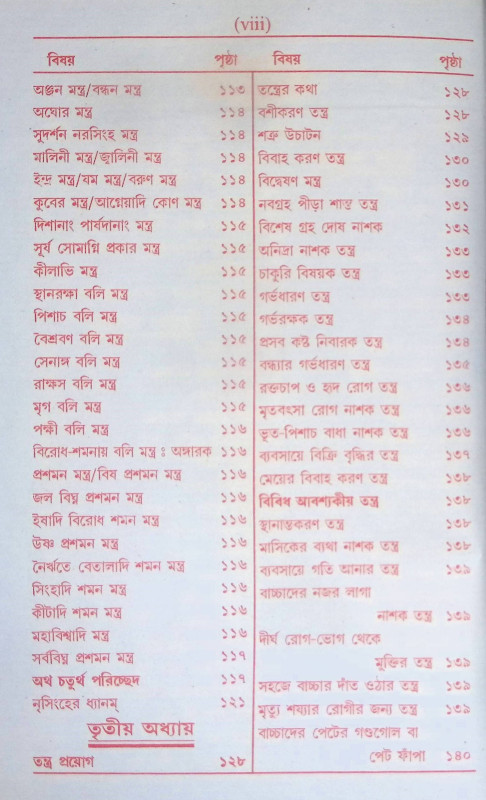 (viii)
বিষয় পৃষ্ঠা
অঞ্জন মন্ত্র/বন্ধন মন্ত্র ১১৩
অঘোর মন্ত্র ১১৪
সুদর্শন নরসিংহ মন্ত্র ১১৪
মালিনী মন্ত্র/জ্বালিনী মন্ত্র ১১৪
ইন্দ্র মন্ত্র/যম মন্ত্র/বরুণ মন্ত্র ১১৪
কুবের মন্ত্র/আগ্নেয়াদি কোণ মন্ত্র ১১৪
দিশানাং পার্বদানাং মন্ত্র ১১৫
সূর্য সোমাগ্নি প্রকার মন্ত্র ১১৫
কীলাভি মন্ত্র ১১৫
স্থানরক্ষা বলি মন্ত্র ১১৫
পিশাচ বলি মন্ত্র ১১৫
বৈশ্রবণ বলি মন্ত্র ১১৫
সেনাঙ্গ বলি মন্ত্র ১১৫
রাক্ষস বলি মন্ত্র ১১৫
মৃগ বলি মন্ত্র ১১৫
পক্ষী বলি মন্ত্র ১১৬
বিরোধ-শমনায় বলি মন্ত্র ঃ অঙ্গারক ১১৬
প্রশমন মন্ত্র/বিষ প্রশমন মন্ত্র ১১৬
জল বিঘ্ন প্রশমন মন্ত্র ১১৬
ইষাদি বিরোধ শমন মন্ত্র ১১৬
উষ্ণ প্রশমন মন্ত্র ১১৬
নৈর্ঋতে বেতালাদি শমন মন্ত্র ১১৬
সিংহাদি শমন মন্ত্র ১১৬
কীটাদি শমন মন্ত্র ১১৬
মহাবিশ্বাদি মন্ত্র ১১৬
সর্ববিঘ্ন প্রশমন মন্ত্র ১১৭
অথ চতুর্থ পরিচ্ছেদ ১১৭
নৃসিংহের ধ্যানম্ ১২১
তৃতীয় অধ্যায়
তন্ত্র প্রয়োগ ১২৮
বিষয় পৃষ্ঠা
তন্ত্রের কথা ১২৮
বশীকরণ তন্ত্র ১২৮
শত্রু উচাটন ১২৯
বিবাহ করণ তন্ত্র ১৩০
বিদ্বেষণ মন্ত্র ১৩০
নবগ্রহ পীড়া শান্ত তন্ত্র ১৩১
বিশেষ গ্রহ দোষ নাশক ১৩২
অনিদ্রা নাশক তন্ত্র ১৩৩
চাকুরি বিষয়ক তন্ত্র ১৩৩
গর্ভধারণ তন্ত্র ১৩৩
গর্ভরক্ষক তন্ত্র ১৩৪
প্রসব কষ্ট নিবারক তন্ত্র ১৩৪
বন্ধ্যার গর্ভধারণ তন্ত্র ১৩৫
রক্তচাপ ও হৃদ রোগ তন্ত্র ১৩৬
মৃতবৎসা রোগ নাশক তন্ত্র ১৩৬
ভূত-পিশাচ বাধা নাশক তন্ত্র ১৩৬
ব্যবসায়ে বিক্রি বৃদ্ধির তন্ত্র ১৩৭
মেয়ের বিবাহ করণ তন্ত্র ১৩৮
বিবিধ আবশ্যকীয় তন্ত্র ১৩৮
স্থানান্তকরণ তন্ত্র ১৩৮
মাসিকের ব্যথা নাশক তন্ত্র ১৩৮
ব্যবসায়ে গতি আনার তন্ত্র ১৩৯
বাচ্চাদের নজর লাগা
নাশক তন্ত্র ১৩৯
দীর্ঘ রোগ-ভোগ থেকে
মুক্তির তন্ত্র ১৩৯
সহজে বাচ্চার দাঁত ওঠার তন্ত্র ১৩৯
মৃত্যু শয্যার রোগীর জন্য তন্ত্র ১৩৯
বাচ্চাদের পেটের গণ্ডগোল বা
পেট ফাঁপা ১৪০